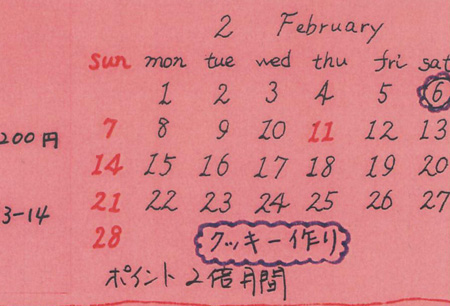 2 February
sun mon tue wed thu fri sat
1 2 3 4 5 6
7 8 9 10 11 12 13
200円
14 15 16 17 18 19 20
21 22 23 24 25 26 27
3-14
28 クッキー作り
ポイント2倍月間